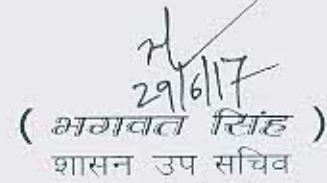 29/6/17
( भगवत सिंह )
शासन उप सचिव